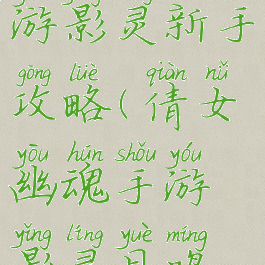 游影灵新手
gōng lüè qiàn nǚ
攻略(倩女
yōu hún shǒu yóu
幽魂手游
yǐng líng yuè míng
影灵月明